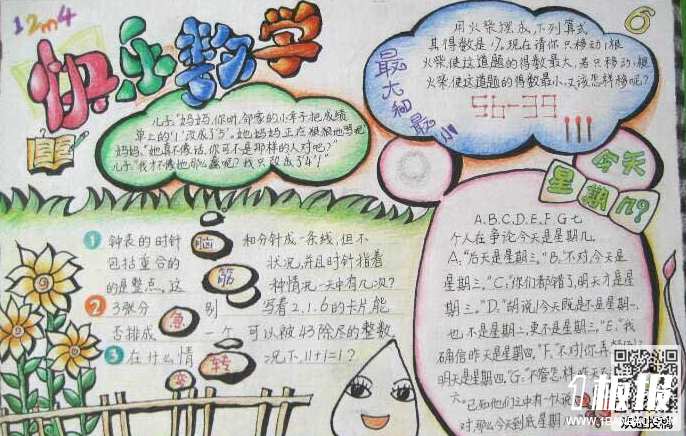 12m4
快乐数学
儿子:"妈妈,你听,邻家的小幸子把成绩
单上的'1'改成了'5'。她妈妈正在狠狠地骂她
妈妈:"她真不像话,你可不是那样的人对吧?"
儿子:"我才不像她那么蠢呢?我只改成了'4'!"
最大和最小
用火柴摆成下列算式
其得数是17。现在请你只移动1根
火柴使这道题的得数最大,若只移动1根
火柴使这道题的得数最小,又该怎样移呢?
56-39
6
今天
星期几?
脑筋急转弯
1 钟表的时针和分针成一条线,但不
包括重合的状况,并且时针指着
的是整点。这种情况一天中有几次?
2 3张分别写着2.1.6的卡片能
否排成一个可以被43除尽的整数。
3 在什么情况下,11+1=1?
A.B.C.D.E.F.G七
个人在争论今天是星期几。
A."后天是星期三。"B."不对,今天是
星期三。"C."你们都错了,明天才是星
期三。"D."胡说!今天既不是星期一,
也不是星期二,更不是星期三。"E."我
确信昨天是星期四。"F."不对!你弄
明天是星期四。"G."不管怎样,昨天
六。"
已知他们之中有一
对,那么今天到底星期
1板报